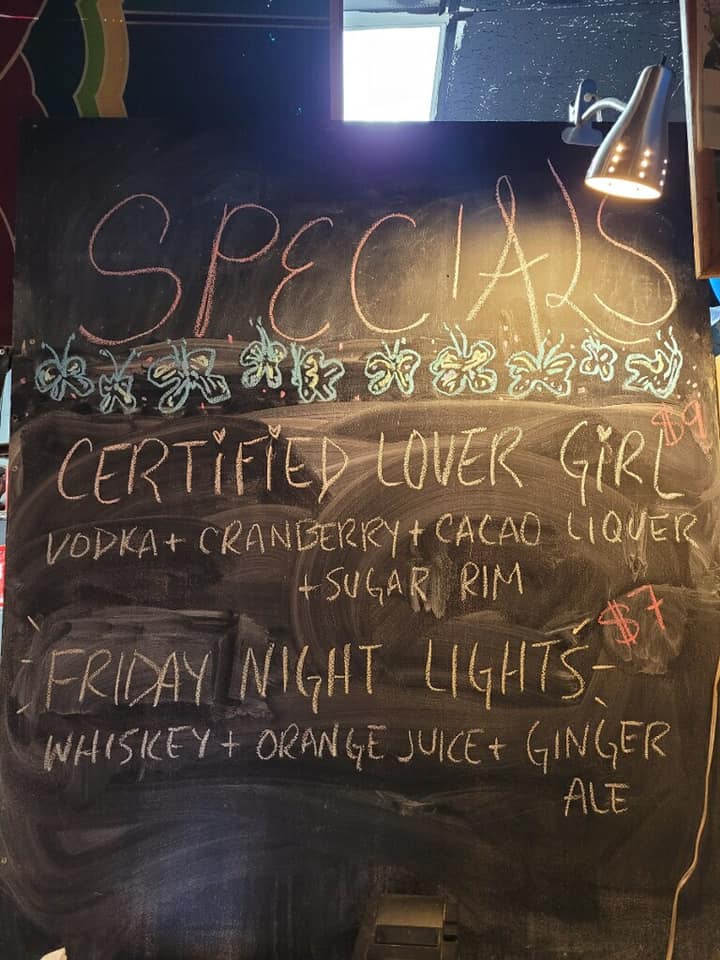 SPECIALS
$9
CERTiFiED LOVER GiRL
VODKA + CRANBERRY + CACAO LIQUER
+ SUGAR RIM
$7
FRIDAY NIGHT LIGHTS
WHISKEY + ORANGE JUICE + GINGER
ALE